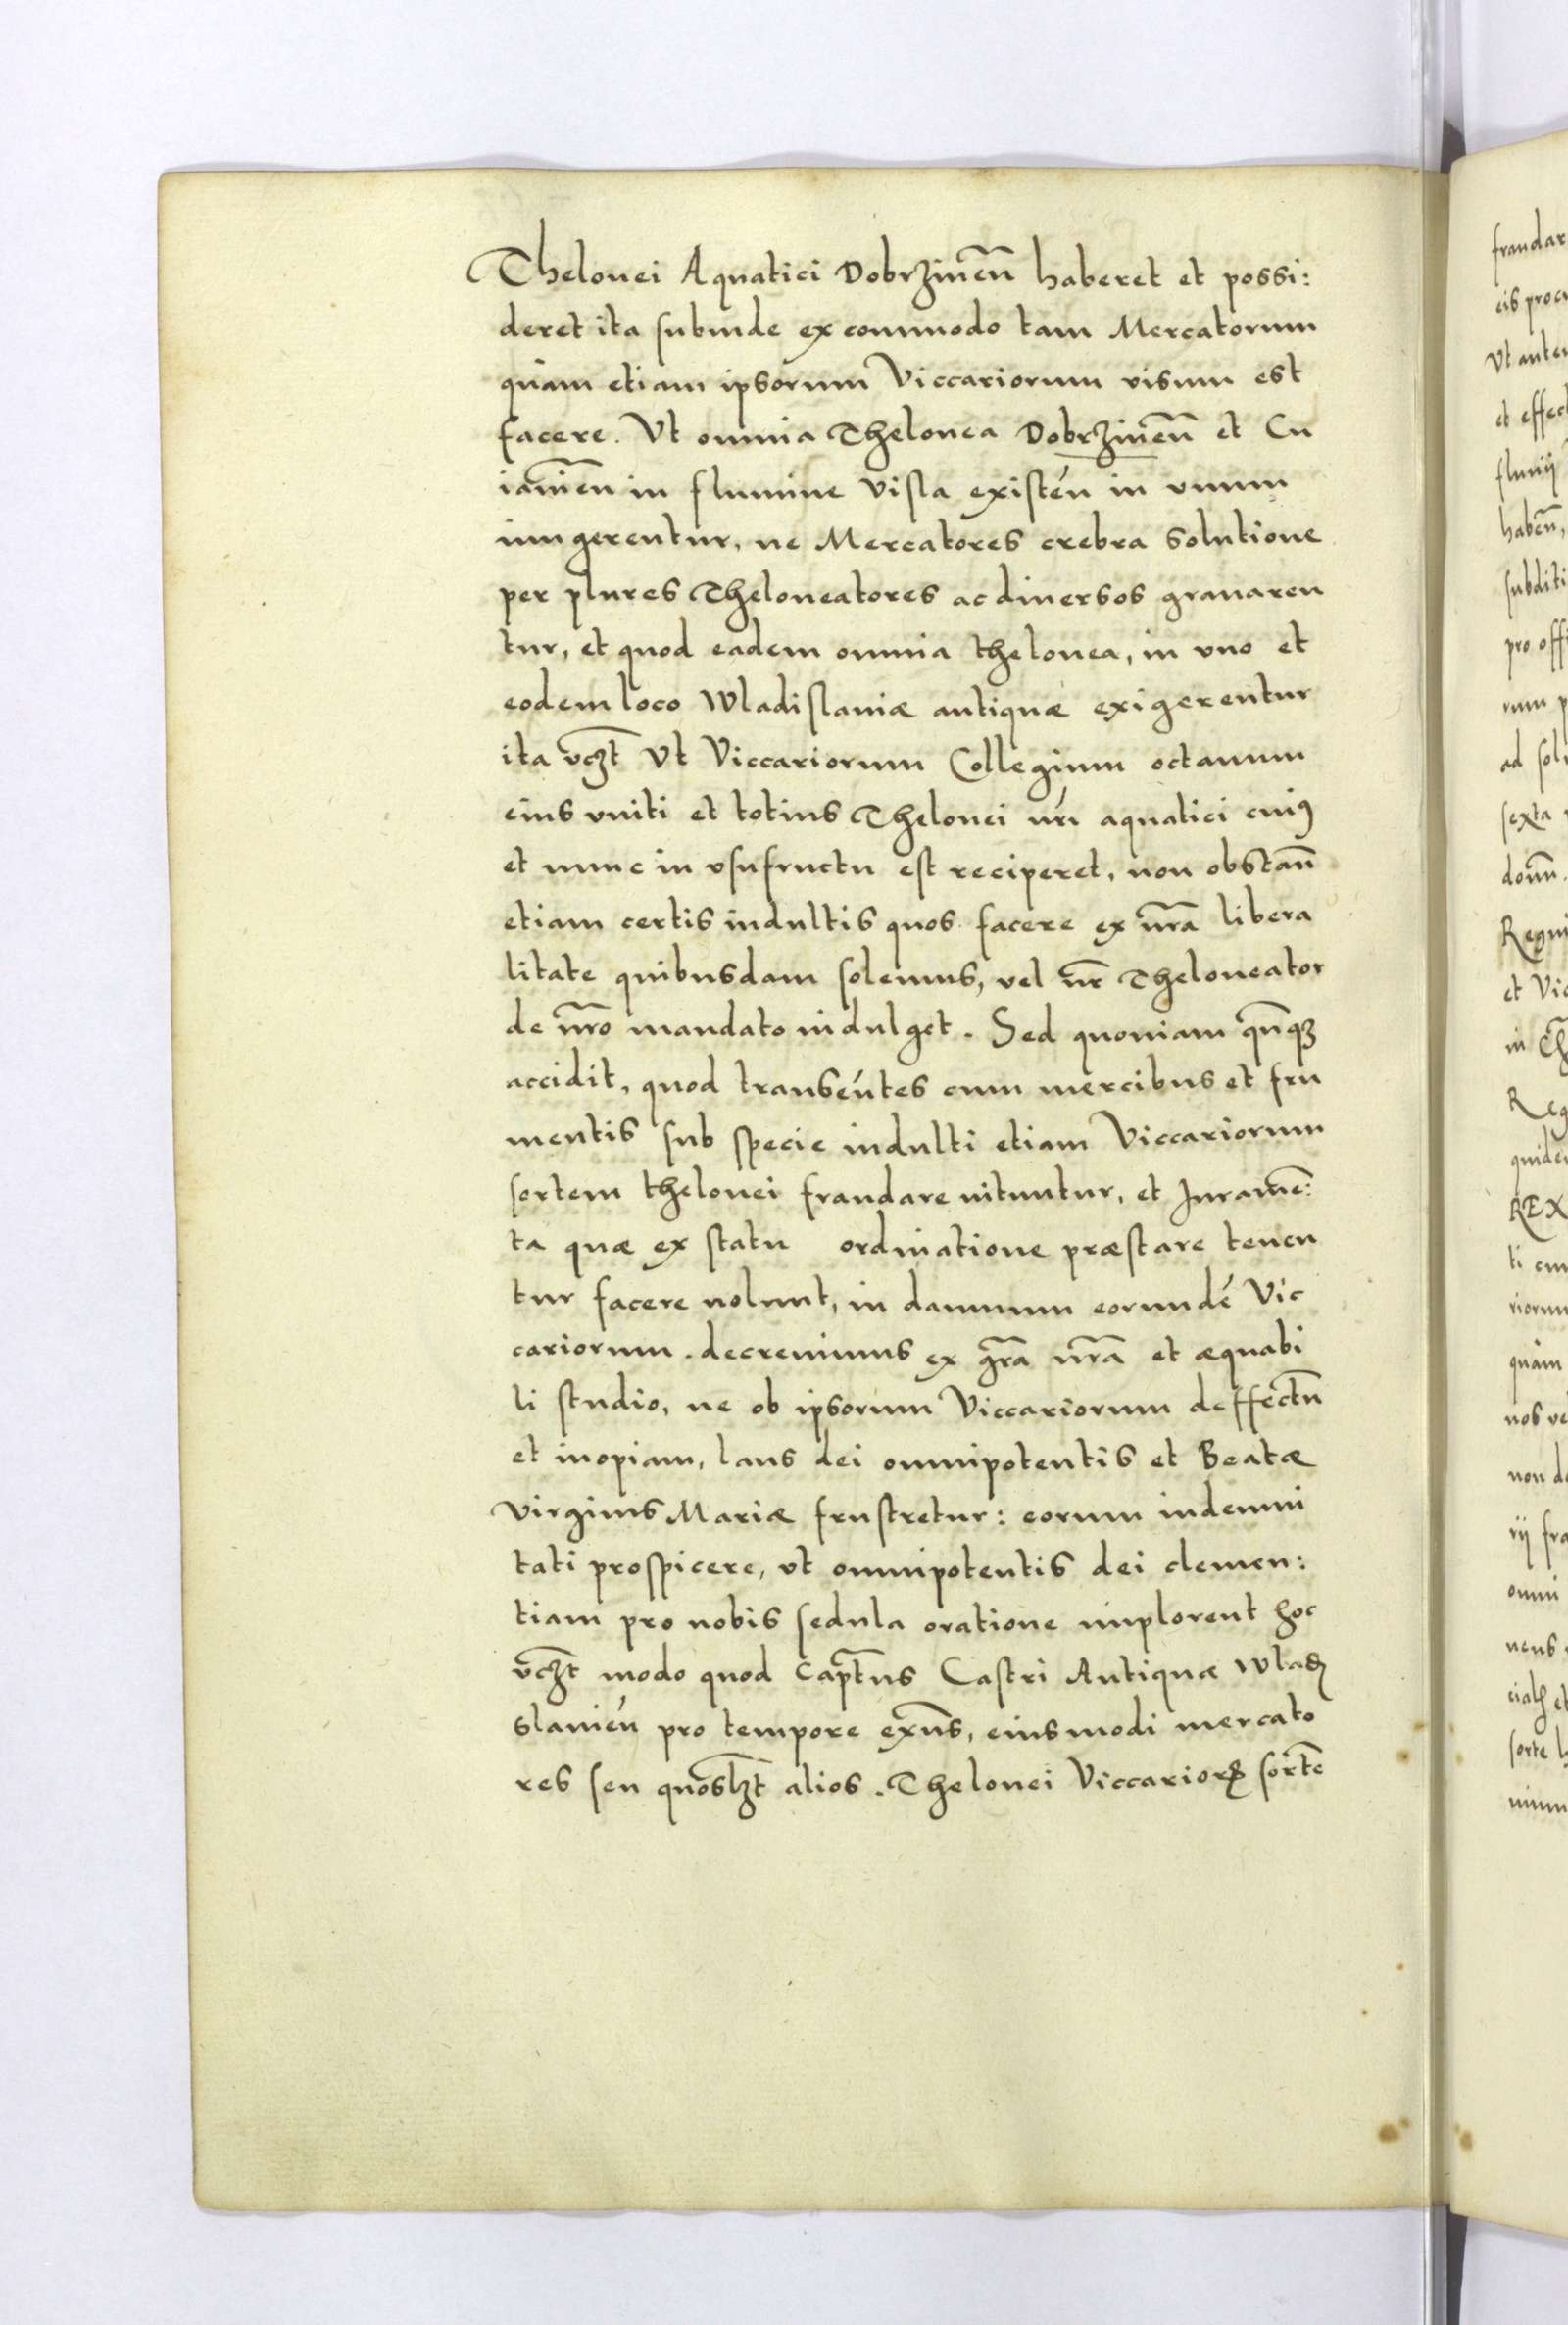 Thelonei Aquatici Dobrzineñ haberet et possi:
deret ita subinde ex commodo tam Mercatorum
quàm etiam ipsorum Viccariorum visum est
facere. Vt omnia Thelonea Dobrzineñ et Cu
iavieñ in flumine Visla existén in vnum
iungerentur, ne Mercatores crebra solutione
per plures Theloneatores ac diuersos grauaren
tur, et quod eadem omnia thelonea, in vno et
eodem loco Wladislauiæ antiquæ exigerentur
ita vcꝫt Vt Viccariorum Collegium octauum
eius vniti et totius Thelonei nr̃i aquatici cuiꝰ
et nunc in vsufructu est reciperet, non obstañ
etiam certis indultis quos facere ex nr̃a libera
litate quibusdam solemus, vel nr̃ Theloneator
de nr̃o mandato indulget. Sed quoniam qñqꝫ
accidit, quod transeúntes cum mercibus et fru
mentis sub specie indulti etiam Viccariorum
sortem thelonei fraudare nituntur, et Jurame͂:
ta quæ ex statu ordinatione præstare tenen
tur facere nolunt, in damnum eorundé Vic
cariorum. decreuimus ex gr̃a nr̃a et æquabi
li studio, ne ob ipsorum Viccariorum deffectũ
et inopiam, laus dei omnipotentis et Beatæ
Virginis Mariæ frustretur: eorum indemni
tati prospicere, vt omnipotentis dei clemen:
tiam pro nobis sedula oratione implorent hoc
vcꝫt modo quod Cap̃tus Castri Antiquæ Wladi
slauień pro tempore exñs, eiusmodi mercato
res seu quoslꝫt alios. Thelonei Viccarioꝝ sortẽ
fraudar
eis procu
Vt autem
et effect
fluuij
habeñ,
subditi
pro offi
rum p
ad solu
sexta
domñ.
Regni
et Vic
in
Reg
quidem
REX
ti cum
riorum
quàm
nos ve
non de
rij fra
omni
uens
et
sorte